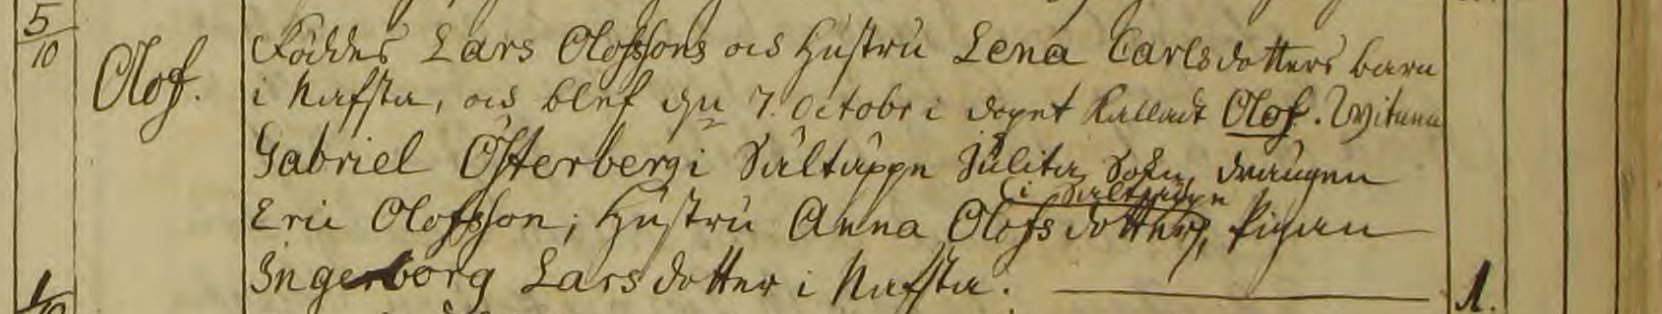 5/10
Olof.
Föddes Lars Olofssons och Hustru Lena Carlsdotters barn
i Nafsta, och blef d. 7. Octobr i dopet kalladt Olof. Wittnen
Gabriel Österberg i Sältäppe Julita Sokn, drängen
i Sältäppe
Eric Olofsson; Hustru Anna Olofsdotter, Pigan
Ingerborg Larsdotter i Nafsta.
1.